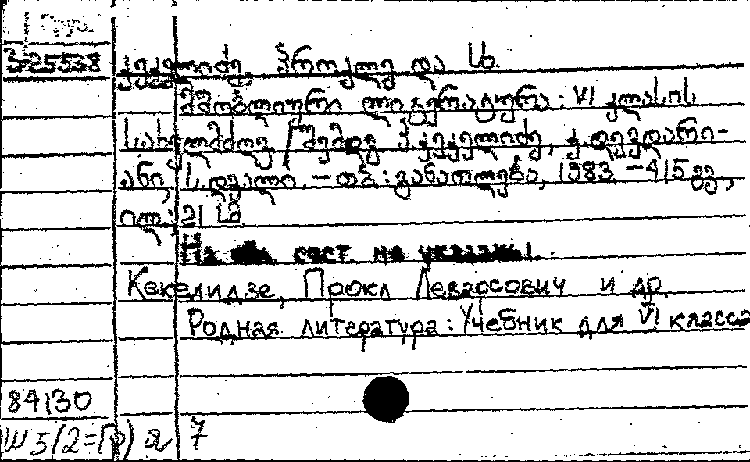 Груз.
კეკელიძე, პროკლე და სხ.
მშობლიური ლიტერატურა : VI კლასის
სახელმძღვ. / შემდგ. პ. კეკელიძე, კ. თევდორი-
ანი, ს. დვალი. – თბ : განათლება, 1983. – 415 გვ.,
ილ.; 21 სმ
На сост. не указаны.
Кекелидзе, Прокл Левардович и др.
Родная литература : Учебник для VI класса
84130
Ш5(2=Гр)я7